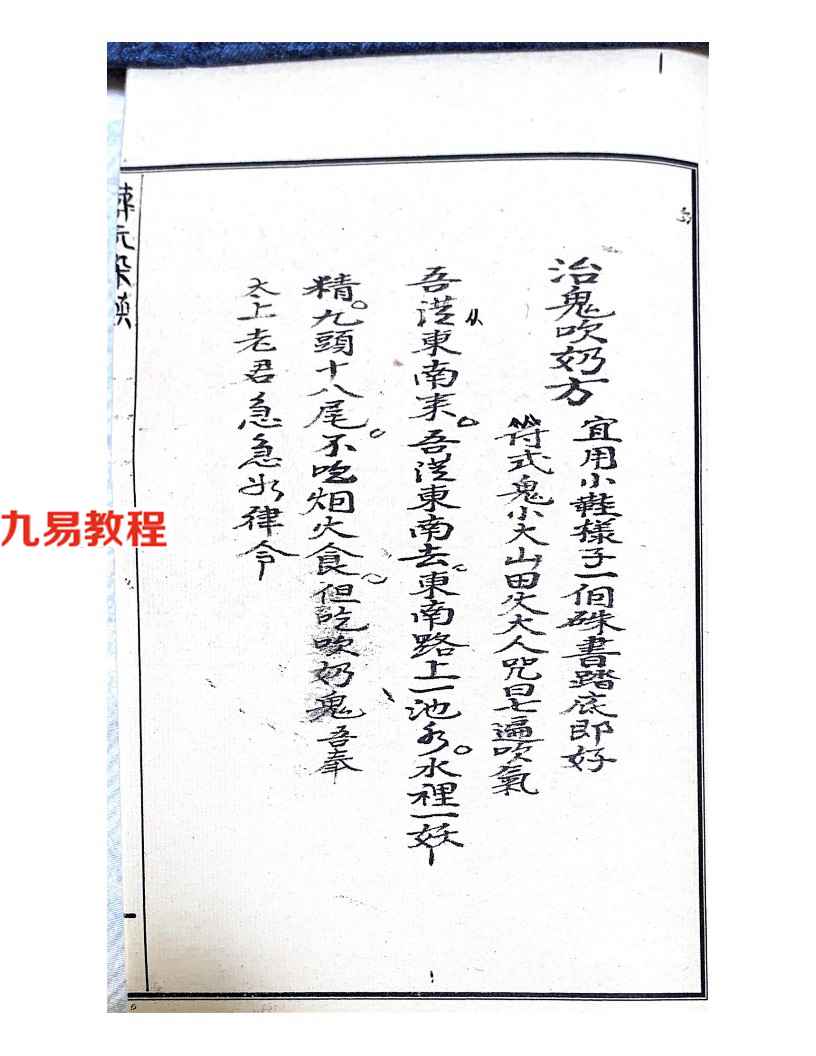 治鬼吹奶方
宜用小鞋樣子一個硃書踏底即好
符式鬼小大山田火大人咒曰七遍吹氣
吾從東南来。吾從東南去。東南路上一池水。水裡一妖
精。九頭十八尾。不吃烟火食。但吃吹奶鬼吾奉
太上老君急急如律令
九易教程